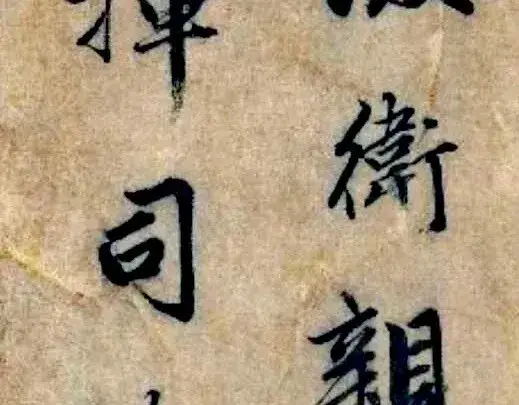 衛親
揮司